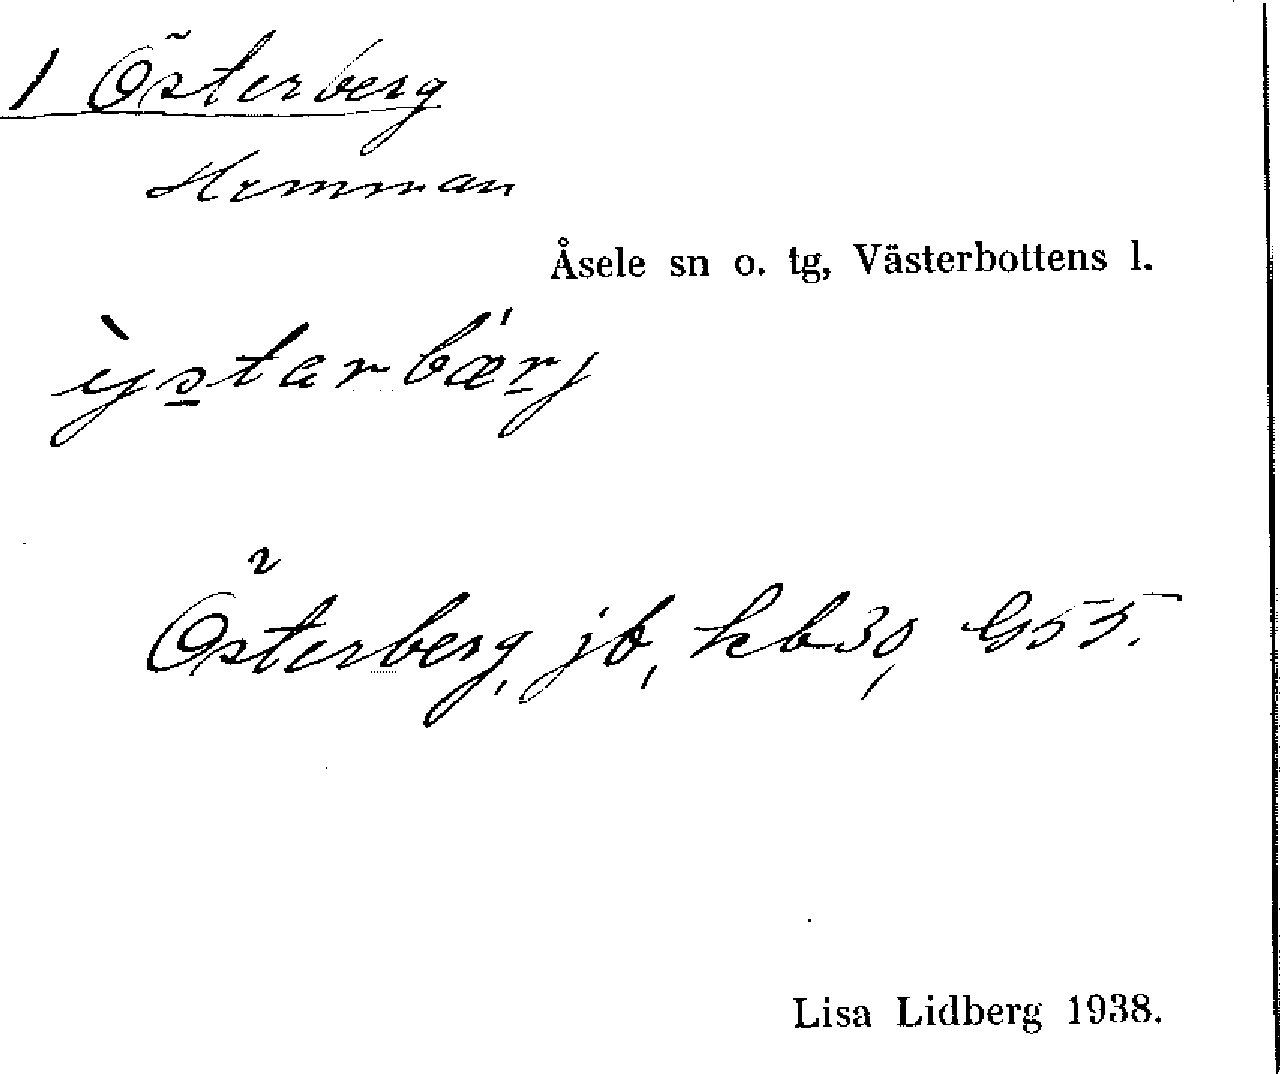 1 Österberg
Hemman
Åsele sn o. tg, Västerbottens l.
ỳstarbærj
Österberg, jb, kb 30, G55.
Lisa Lidberg 1938.